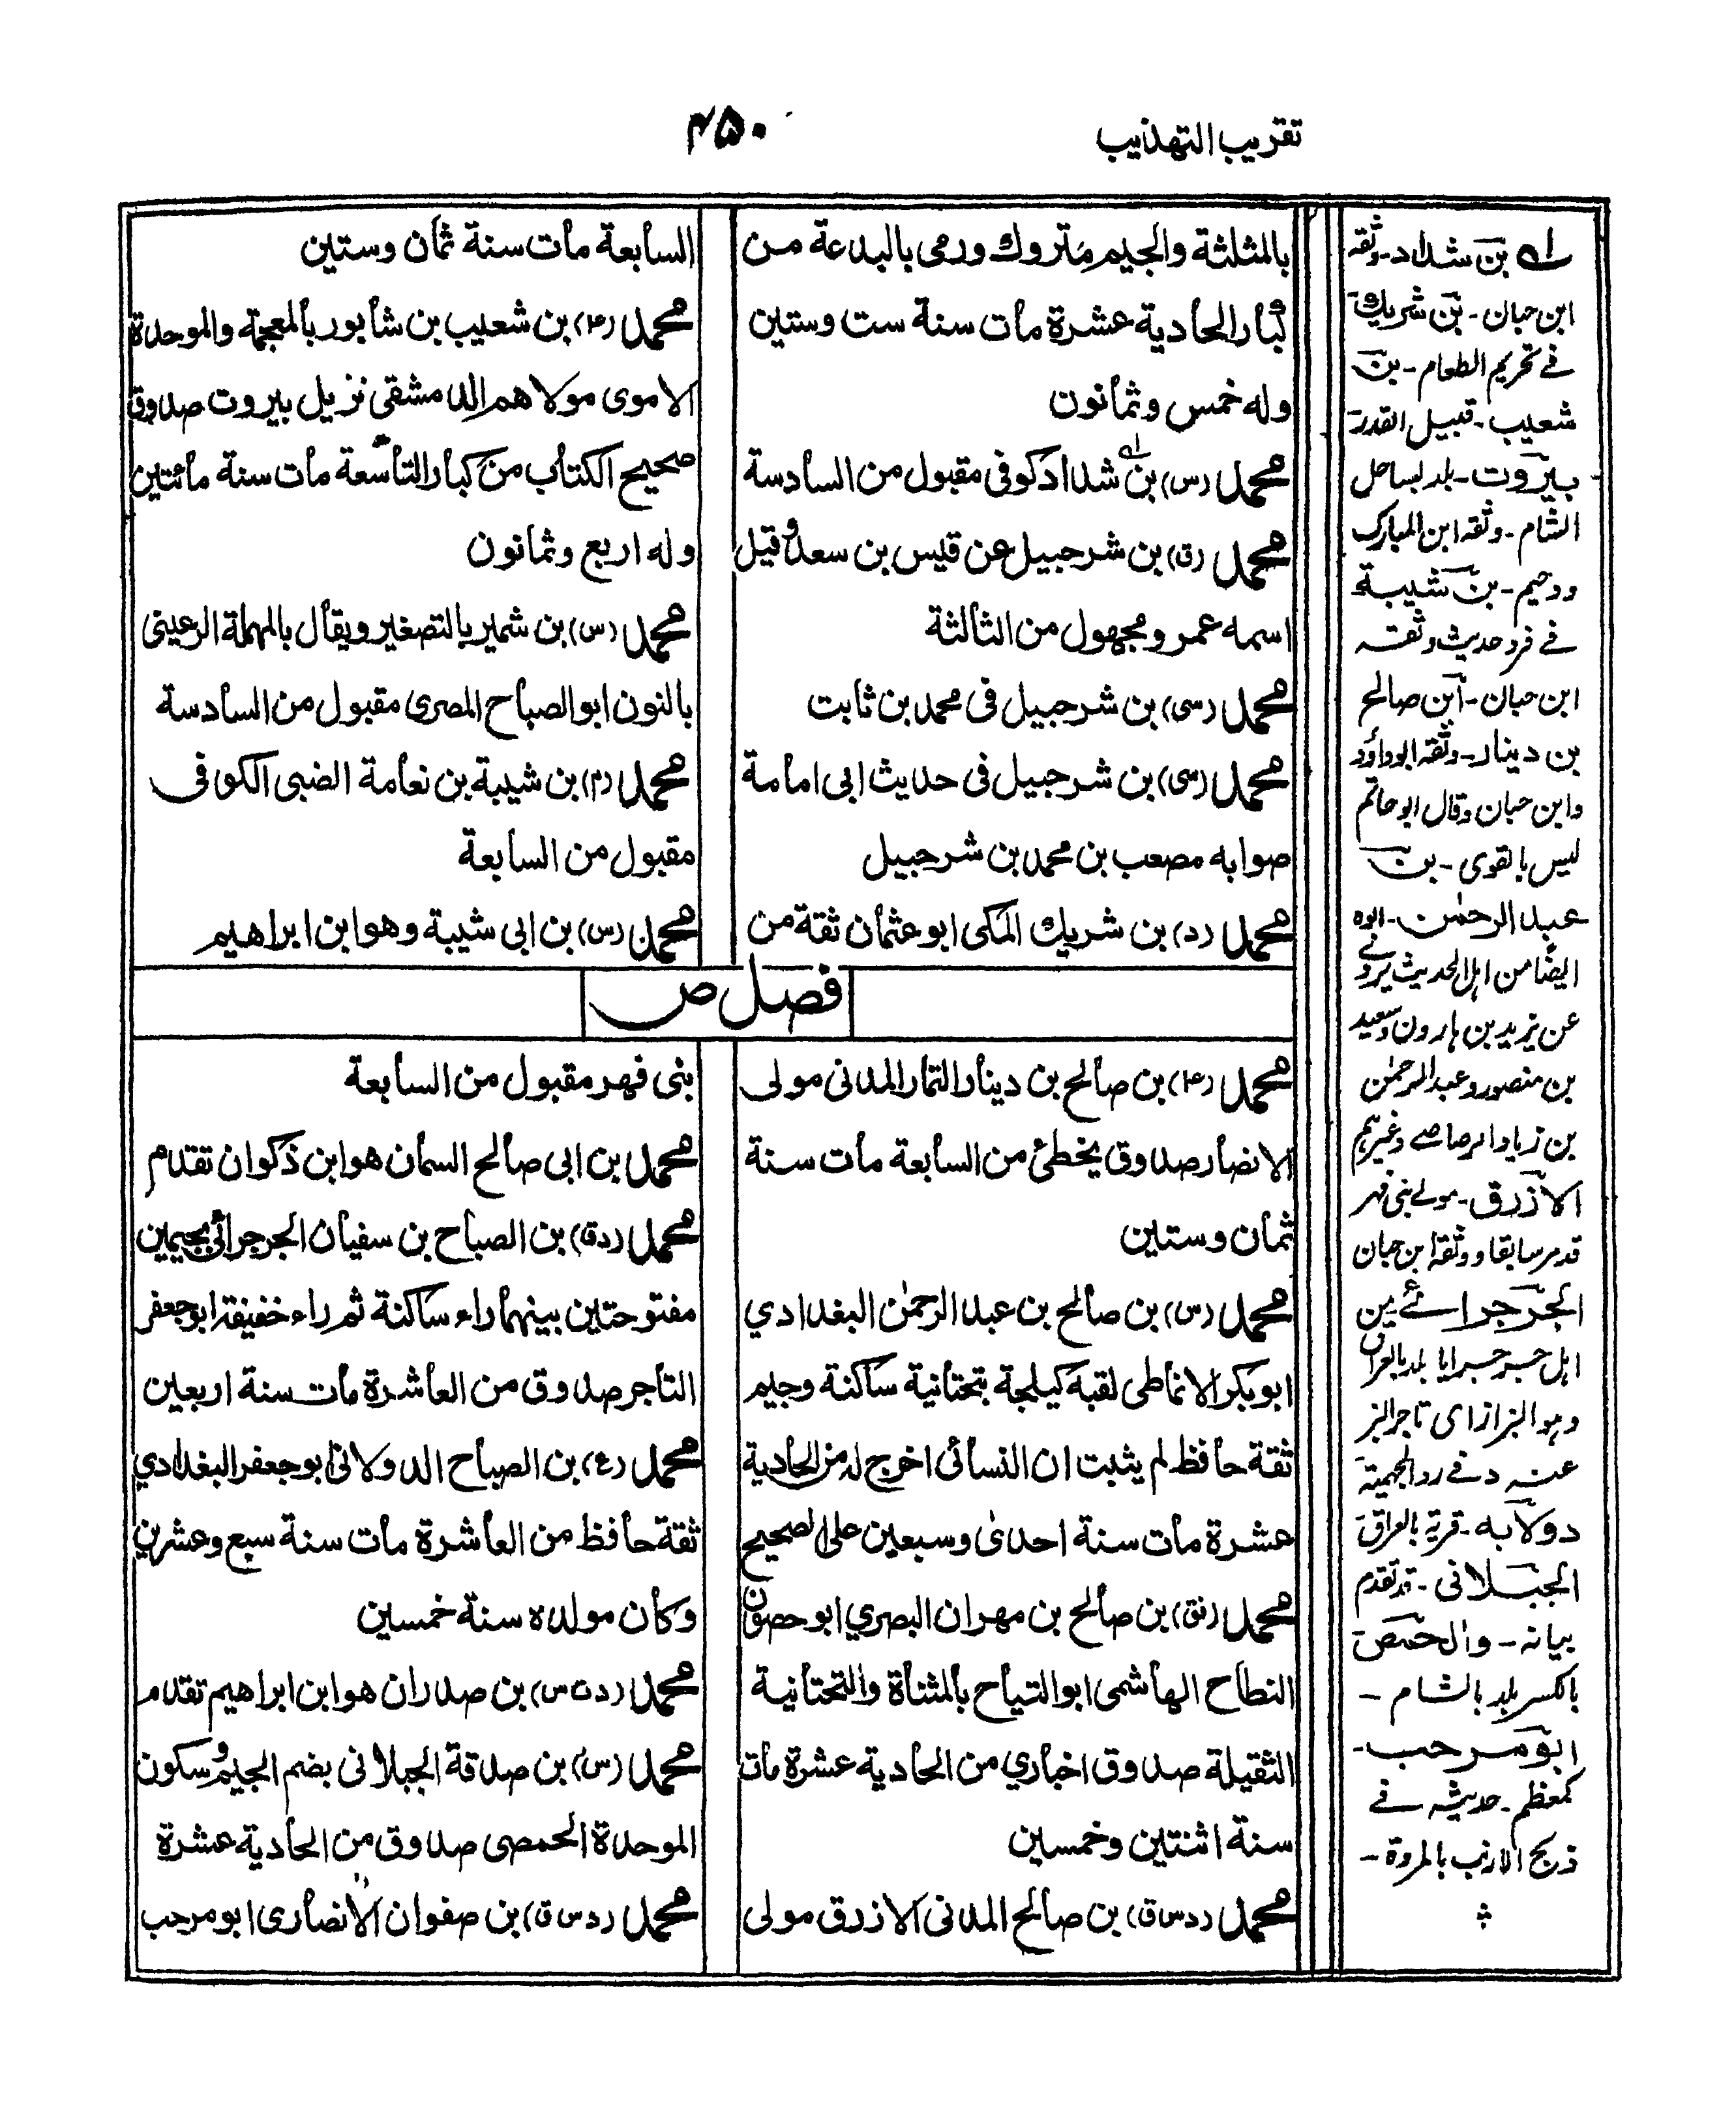 تقريب التهذيب
۴۵۰
بالمثلثة والجيم متروك ورمى بالبدعة من
كبار الحادية عشرة مات سنة ست وستين
وله خمس وثمانون
محمد (س) بن شداد كوفى مقبول من السادسة
محمد (ق) بن شرحبيل عن قيس بن سعد وقيل
اسمه عمر ومجهول من الثالثة
محمد (سى) بن شرحبيل فى محمد بن ثابت
محمد (سى) بن شرحبيل فى حديث ابى امامة
صوابه مصعب بن محمد بن شرحبيل
محمد (د) بن شريك المكى ابو عثمان ثقة من
السابعة مات سنة ثمان وستين
محمد (۴) بن شعيب بن شابور بالمعجمة والموحدة
الاموى مولاهم الدمشقى نزيل بيروت صدوق
صحيح الكتاب من كبار التاسعة مات سنة مائتين
وله اربع وثمانون
محمد (س) بن شمير بالتصغير ويقال بالمهملة الرعينى
بالنون ابو الصباح المصرى مقبول من السادسة
محمد (م) بن شيبة بن نعامة الضبى الكوفى
مقبول من السابعة
محمد (س) بن ابى شيبة وهو ابن ابراهيم
فصل ص
محمد (۴) بن صالح بن دينار التمار المدنى مولى
الانصار صدوق يخطئ من السابعة مات سنة
ثمان وستين
محمد (س) بن صالح بن عبد الرحمٰن البغدادي
ابو بكر الانماطى لقبه كيلجة بتحتانية ساكنة وجيم
ثقة حافظ لم يثبت ان النسائى اخرج له من الحادية
عشرة مات سنة احدىٰ وسبعين على الصحيح
محمد (نق) بن صالح بن مهران البصري ابو
النطاح الهاشمى ابو التياح بالمثناة والتحتانية
الثقيلة صدوق اخباري من الحادية عشرة مات
سنة اثنتين وخمسين
محمد (دس ق) بن صالح المدنى الازرق مولى
بنى فهر مقبول من السابعة
محمد بن ابى صالح السمان هو ابن ذكوان تقدم
محمد (دق) بن الصباح بن سفيان الجرجرائى بجيمين
مفتوحتين بينهما راء ساكنة ثم راء خفيفة ابو جعفر
التاجر صدوق من العاشرة مات سنة اربعين
محمد (ع) بن الصباح الدولابى ابو جعفر البغدادي
ثقة حافظ من العاشرة مات سنة سبع وعشرين
وكان مولده سنة خمسين
محمد (دت س) بن صدران هو ابن ابراهيم تقدم
محمد (س) بن صدقة الجبلانى بضم الجيم وسكون
الموحدة الحمصى صدوق من الحادية عشرة
محمد (دس ق) بن صفوان الانصارى ابو مرحب
بن شداد - وثقه
ابن حبان - بن شريك
فے تحريم الطعام - بن
شعيب - قبيل القدر
بيروت - بلد بساحل
الشام - وثقه ابن المبارك
ودحيم - بن شيبة
فے فرد حديث وثقه
ابن حبان - ابن صالح
بن دينار - وثقه ابو داؤد
وابن حبان وقال ابو حاتم
ليس بالقوى - بن
عبد الرحمٰن - ابوه
ايضا من اهل الحديث يروے
عن يزيد بن هارون وسعيد
بن منصور وعبد الرحمٰن
بن زياد الرصاصے وغيرهم
الازرق - مولے بنى فهر
قدم سابقا ووثقه ابن حبان
الجرجرائے من
اهل جرجرايا بلد بالعراق
وهو البزاز اى تاجر البز
عنه د فے رد الجهمية
دولابه - قرية بالعراق
الجبلانى - قد تقدم
بيانه - والحمص
بالكسر بلد بالشام -
ابو مرحب -
كمعظم - حديثه فے
ذبح الارنب بالمروة -